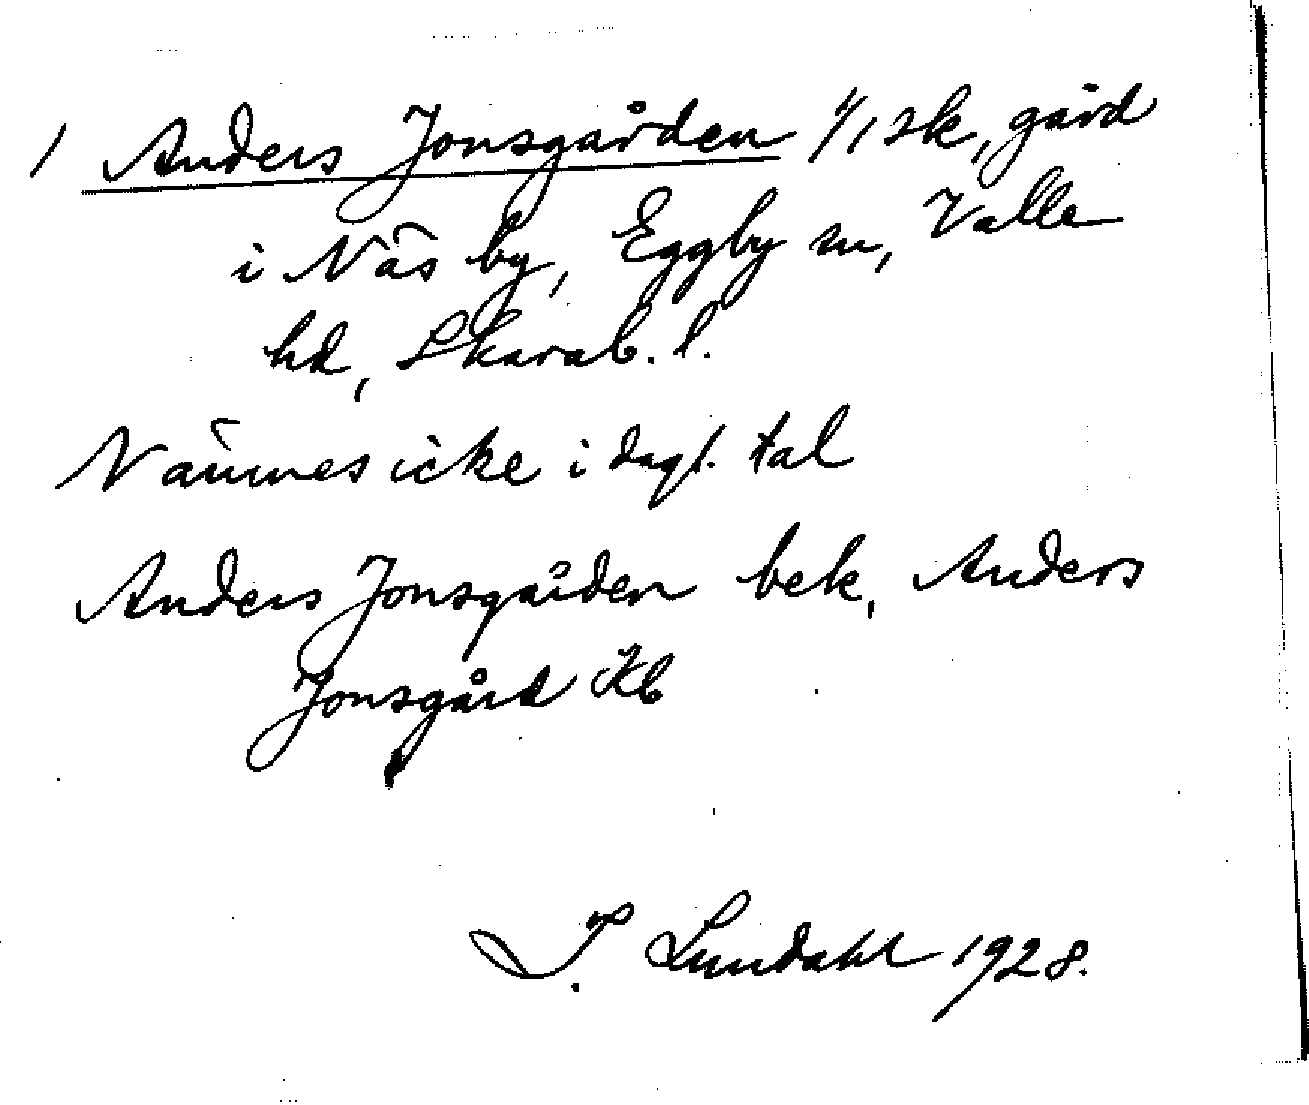 / Anders Jonsgården 1/1 sk, gård
i Näs by, Eggby sn, Valle
hd, Skarab. l.
Nämnes icke i dagl. tal
Anders Jonsgården bek, Anders
Jonsgård Kb
I. Lundahl 1928.